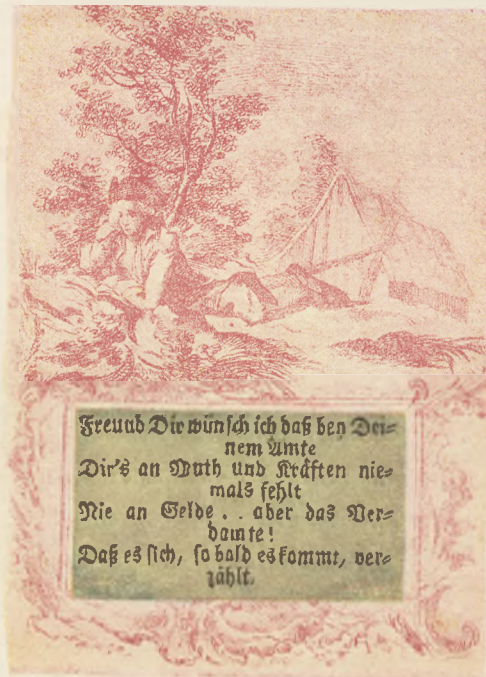 Freuud Dir wünsch ich daß bey Dei⸗
nem Amte
Dir's an Muth und Kräften nie⸗
mals fehlt
Nie an Gelde . . aber das Ver⸗
damte!
Daß es sich, so bald es kommt, ver⸗
zählt.